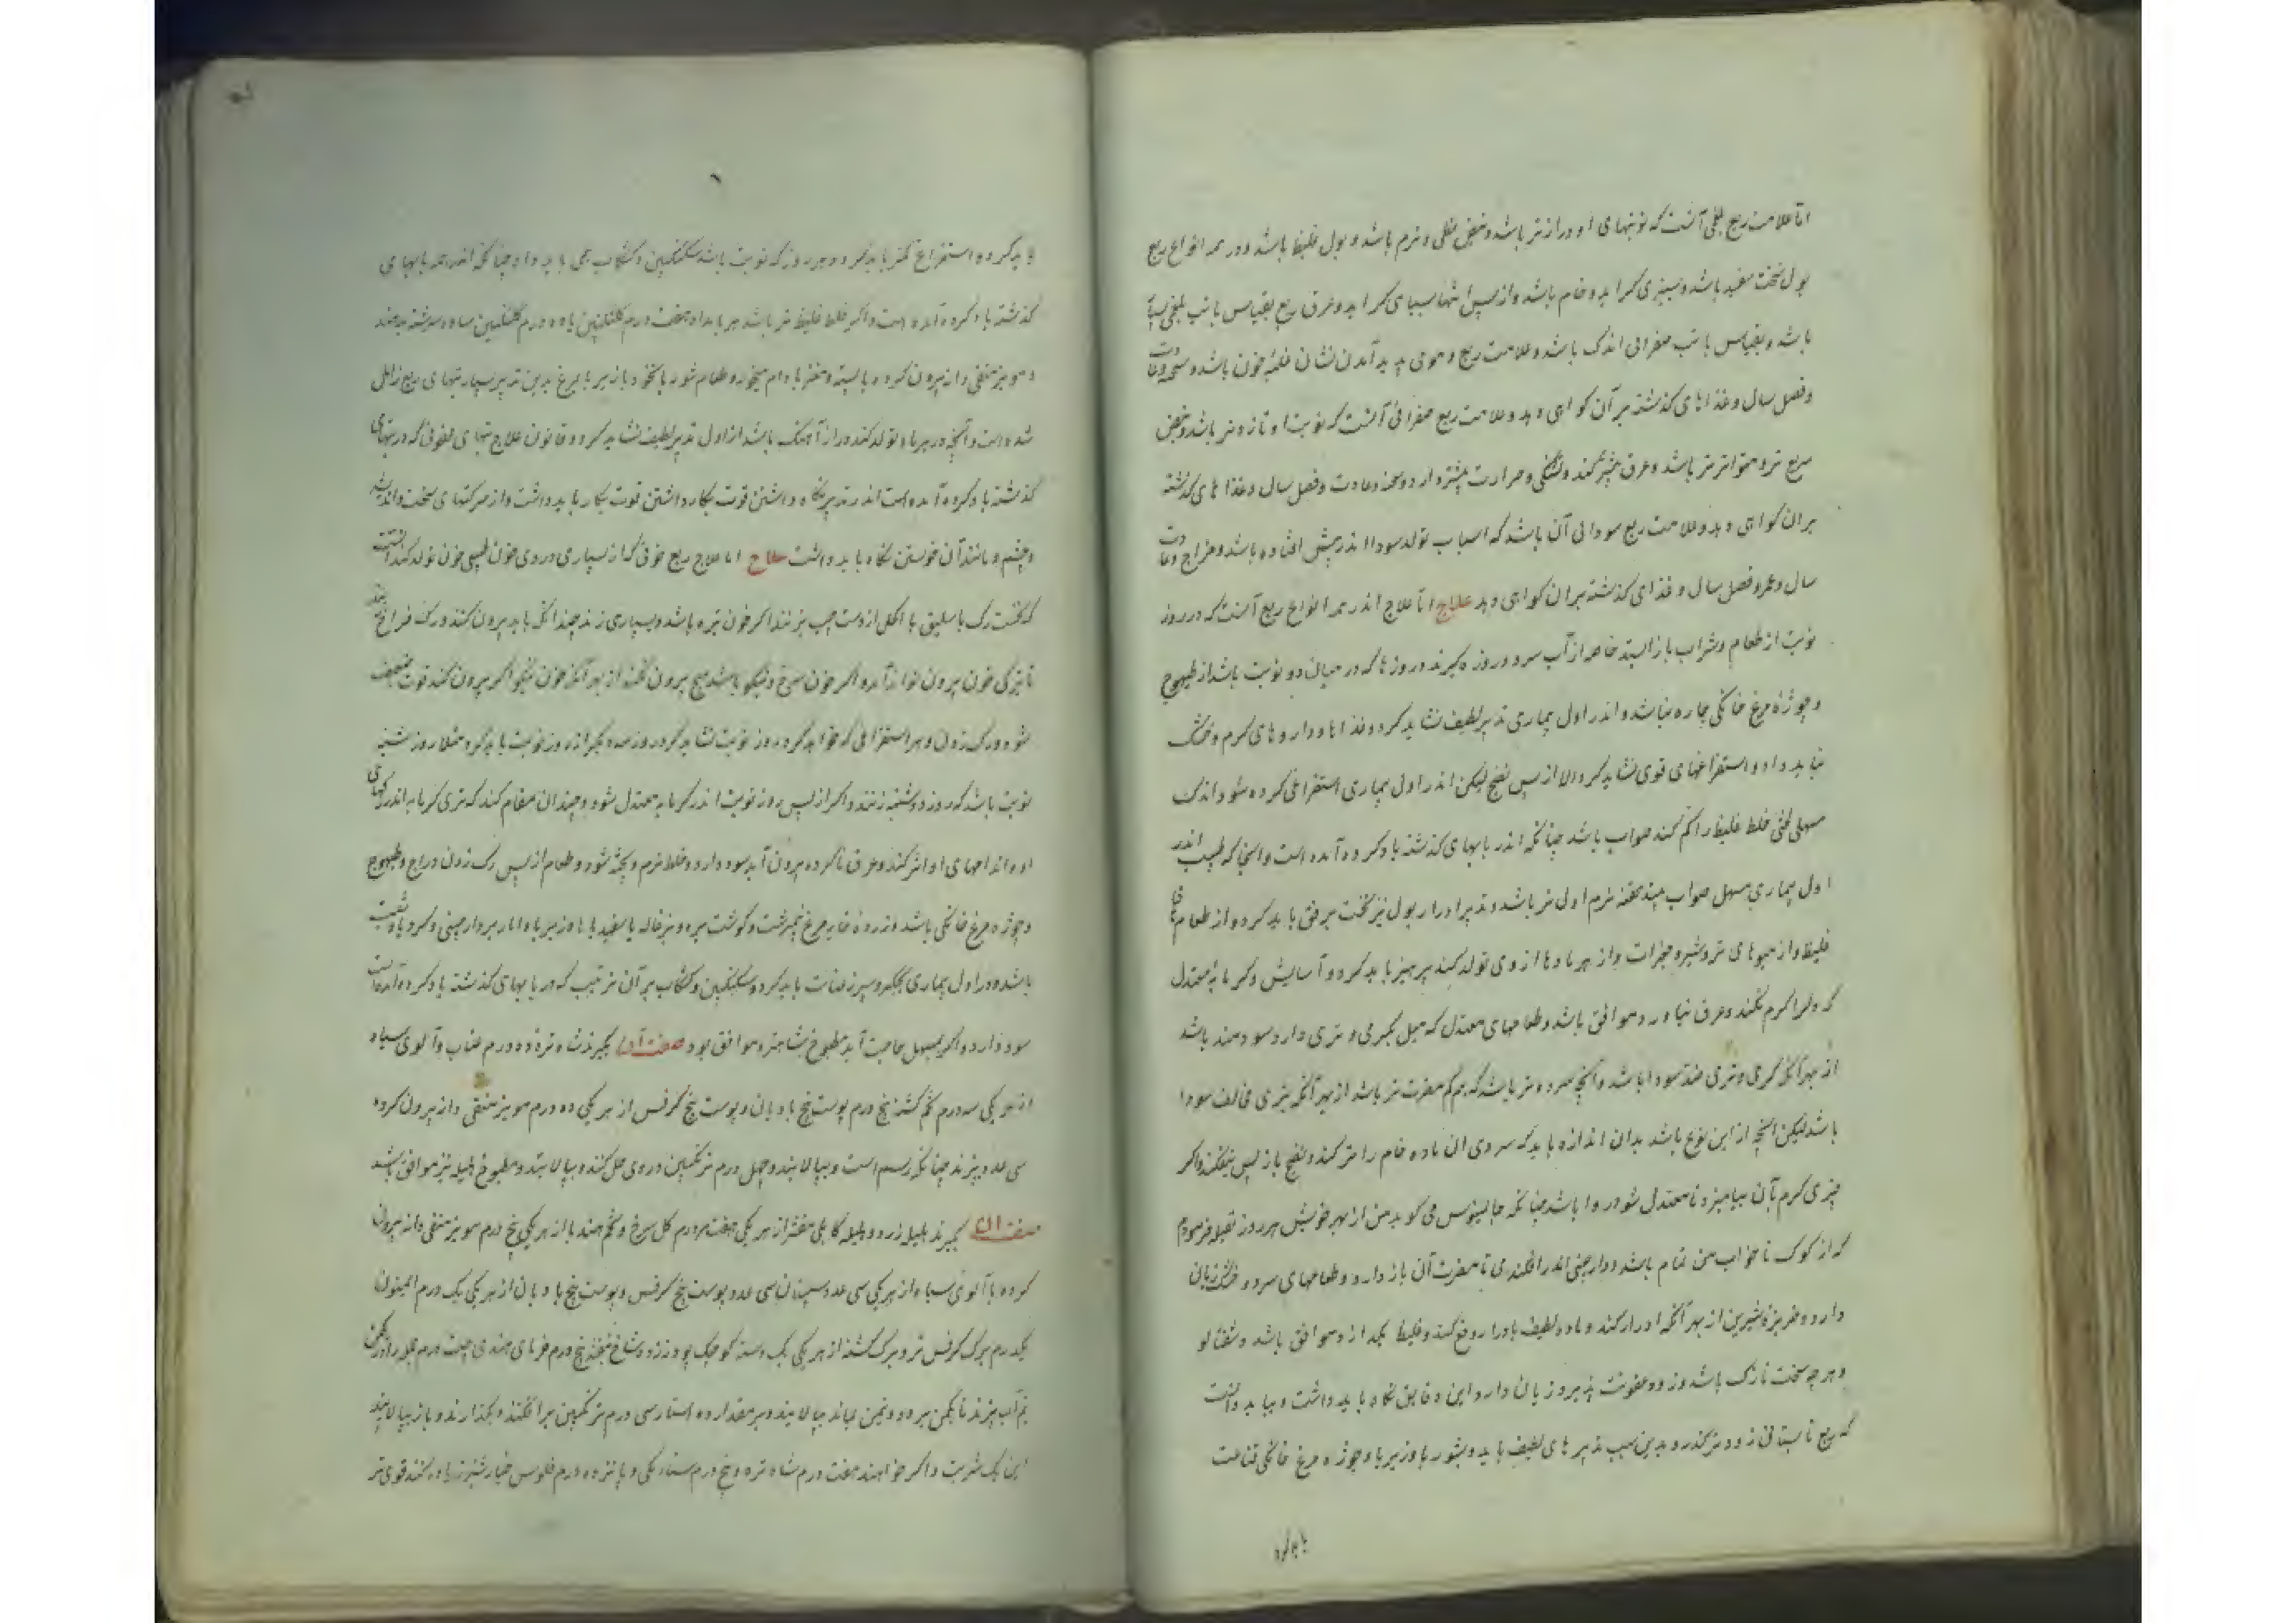 اما علامت ربع بلغمی آنست که نوبتهای او درازتر باشد و نبض بطی و نرم باشد و بول غلیظ باشد و در همه انواع ربع
بول نخست سفید باشد و بسبزی کراید و خام باشد و از پس انتها بسیاهی کراید و عرق ربع بقیاس با تب بلغمی بسیار
باشد و بقیاس با تب صفرائی اندک باشد و علامت ربع دموی پدید آمدن نشان غلبه خون باشد و سحنه و عادت
و فصل سال و غذاهای کذشته بر آن کواهی دهد و علامت ربع صفرائی آنست که نوبت او تازه‌تر باشد و نبض
سریع تر و متواترتر باشد و عرق بیشتر کند و تشنکی و حرارت بیشتر دارد و سحنه و عادت و فصل سال و غذاهای کذشته
بران کواهی دهد و علامت ربع سودائی آن باشد که اسباب تولد سودا اندر پیش افتاده باشد و مزاج و عادت
سال و عمر و فصل سال و غذای کذشته بران کواهی دهد علاج اما علاج اندر همه انواع ربع آنست که در روز
نوبت از طعام و شراب باز ایستد خاصه از آب سرد و روزه کیرند و روزها که در میان دو نوبت باشد از طیهوج
و چوژه مرغ خانکی چاره نباشد و اندر اول بیماری تدبیر لطیف نشاید کرد و غذاها و داروهای کرم و خشک
نباید داد و استفراغهای قوی نشاید کرد الا از پس نضج لیکن اندر اول بیماری استفراغی کرده شود اندک
مسهلی که لختی خلط غلیظ را کم کند صواب باشد چنانکه اندر بابهای کذشته یاد کرده آمده است و آنجا که طبیب اندر
اول بیماری مسهل صواب بیند حقنه نرم اولی تر باشد و تدبیر ادرار بول نیز نخست برفق باید کرد و از طعامهای
غلیظ و از میوهای تر و شیر و جغرات و از هر چه بادها از وی تولد کند پرهیز باید کرد و آسایش و کرمابه معتدل
که او را کرم نکند و عرق نیاورد موافق باشد و طعامهای معتدل که میل بکرمی و تری دارد سودمند باشد
از بهر آنکه کرمی و تری ضد سودا باشد و آنچه سرد و تر باشد که هم کم مضرت تر باشد از بهر آنکه بتری مخالف سودا
باشد لیکن آنچه از این نوع باشد بدان اندازه باید که سردی آن ماده خام را تر کند و نضج باز پس نیفکند و اکر
چیزی کرم بآن بیامیزد تا معتدل شود روا باشد چنانکه جالینوس می کوید من از بهر خویش هر روز بقیله فرمودم
که از کوک تا خواب من تمام باشد و دارچینی اندر افکندی تا مضرت آن باز دارد و طعامهای سرد و خشک زیان
دارد و خربزه شیرین از بهر آنکه ادرار کند و ماده لطیف باورار دفع کند و غلیظ بکدازد موافق باشد و شفتالو
و هر چه سخت نازک باشد و زود عفونت پذیرد زیان دارد این دقایق نکاه باید داشت و بباید دانست
که ربع تابستانی زودتر کذرد و بدین سبب تدبیرهای لطیف باید و بشوربا و زیربا و چوژه مرغ خانکی قناعت
باید کرد
باید کرد و استفراغ کمتر باید کرد و هر روز که نوبت باشد سکنکبین و کشکاب همی باید داد چنانکه اندر همه بابهای
کذشته یاد کرده آمده است و اکر خلط غلیظ تر باشد هر بامداد هفت درم کلنکبین با ده درم سکنکبین ساده سرشته بدهند
و مویز منقی دانه بیرون کرده با پسته و مغز بادام میخورد و طعام شوربا بنخود و یا زیربا بمرغ بدین تدبیر بسیار تبهای ربع زایل
شده است و آنچه در بهر ماه تولد کند دراز آهنک باشد از اول تدبیر لطیف نشاید کرد و قانون علاج تبهای عفونی که در بابهای
کذشته یاد کرده آمده است اندر تدبیر نکاه داشتن قوت بکار داشتن قوت بکار باید داشت و از حرکتهای سخت و اندیشه
و خشم و مانند آن خویشتن نکاه باید داشت علاج اما علاج ربع خونی که از بسیاری دردی خون طبیعی خون تولد کند آنست
که نخست رک باسلیق یا اکحل از دست چپ بزنند اکر خون تیره باشد و بسیاری زند چندانکه باید بیرون کنند و رک فراخ زنند
تا بتیرکی خون بیرون تواند آمد و اکر خون سرخ و نیکو باشد هیچ بیرون نکنند از بهر آنکه خون نیکو اکر بیرون کنند قوت ضعیف
شود و رک زدن و هر استفراغی که خواهد کرد روز نوبت نشاید کرد روز سه دیکر از روز نوبت باید کرد مثلا روز شنبه
نوبت باشد که روز دوشنبه زنند و اکر از پس روز نوبت اندر کرمابه معتدل شود و چندان مقام کند که تری کرمابه اندر رکهای
او و اندامهای او اثر کند و عرق ناکرده بیرون آید سود دارد و خلط نرم و پخته شود و طعام از پس رک زدن دراج و طیهوج
و چوژه مرغ خانکی باشد و زرده خایه مرغ نیمبرشت و کوشت بره و بزغاله با سفیدبا و زیربا و اناربا و دارچینی و کرویا و شبت
باشد و در اول بیماری بجکر و سپرز عنایت باید کرد و سکنکبین و کشکاب بر آن ترتیب که در بابهای کذشته یاد کرده آمده است
سود دارد و اکر بمسهل حاجت آید مطبوخ شاهتره موافق بود صفت آن بکیرند شاه تره ده درم عناب و آلوی سیاه
از هر یکی سه درم تخم کشنیز پنج درم پوست بیخ بادیان و پوست بیخ کرفس از هر یکی ده درم مویز منقی دانه بیرون کرده
سی عدد بپزند چنانکه رسم است و بپالایند و چهل درم ترنکبین در وی حل کنند و بپالایند و مطبوخ هلیله نیز موافق باشد
صفت آن بکیرند هلیله زرد و هلیله کابلی مقشر از هر یکی هفت درم کل سرخ و تخم هندبا از هر یکی پنج درم مویز منقی دانه بیرون
کرده با آلوی سیاه از هر یکی سی عدد سپستان سی عدد پوست بیخ کرفس و پوست بیخ بادیان از هر یکی یک درم افتیمون
یکدرم برک کرفس تر و برک کشنه از هر یکی یک دسته کوچک پودنه ده شاخ بنفشه پنج درم خرمای هندی بیست درم جمله را در یکمن
نیم آب بپزند تا یکمن برود و نیمن بماند بپالایند و بر مقدار ده استار سی درم ترنکبین برافکنند و بکذارند و باز بپالایند
این یک شربت و اکر خواهند هفت درم شاه تره و پنج درم سناء مکی و پانزده درم فلوس خیارشنبر زیاده کنند قوی تر